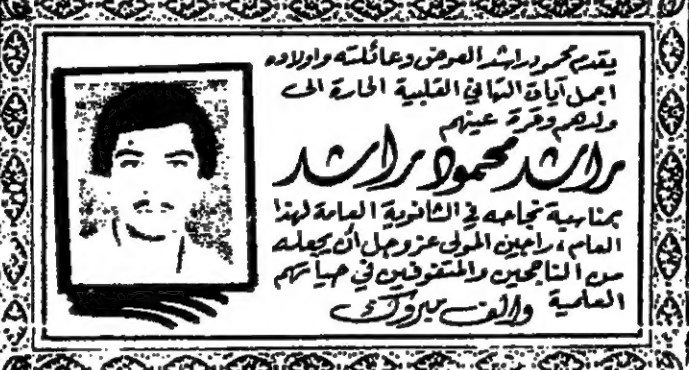 يقدم محمود راشد العوضي وعائلته واولاده
اجمل آيات التهاني القلبية الحارة الى
ولدهم وقرة عينهم
راشد محمود راشد
بمناسبة نجاحه في الثانوية العامة لهذا
العام، راجين المولى عز وجل أن يجعله
من الناجحين والمتفوقين في حياتهم
العلمية والف مبروك